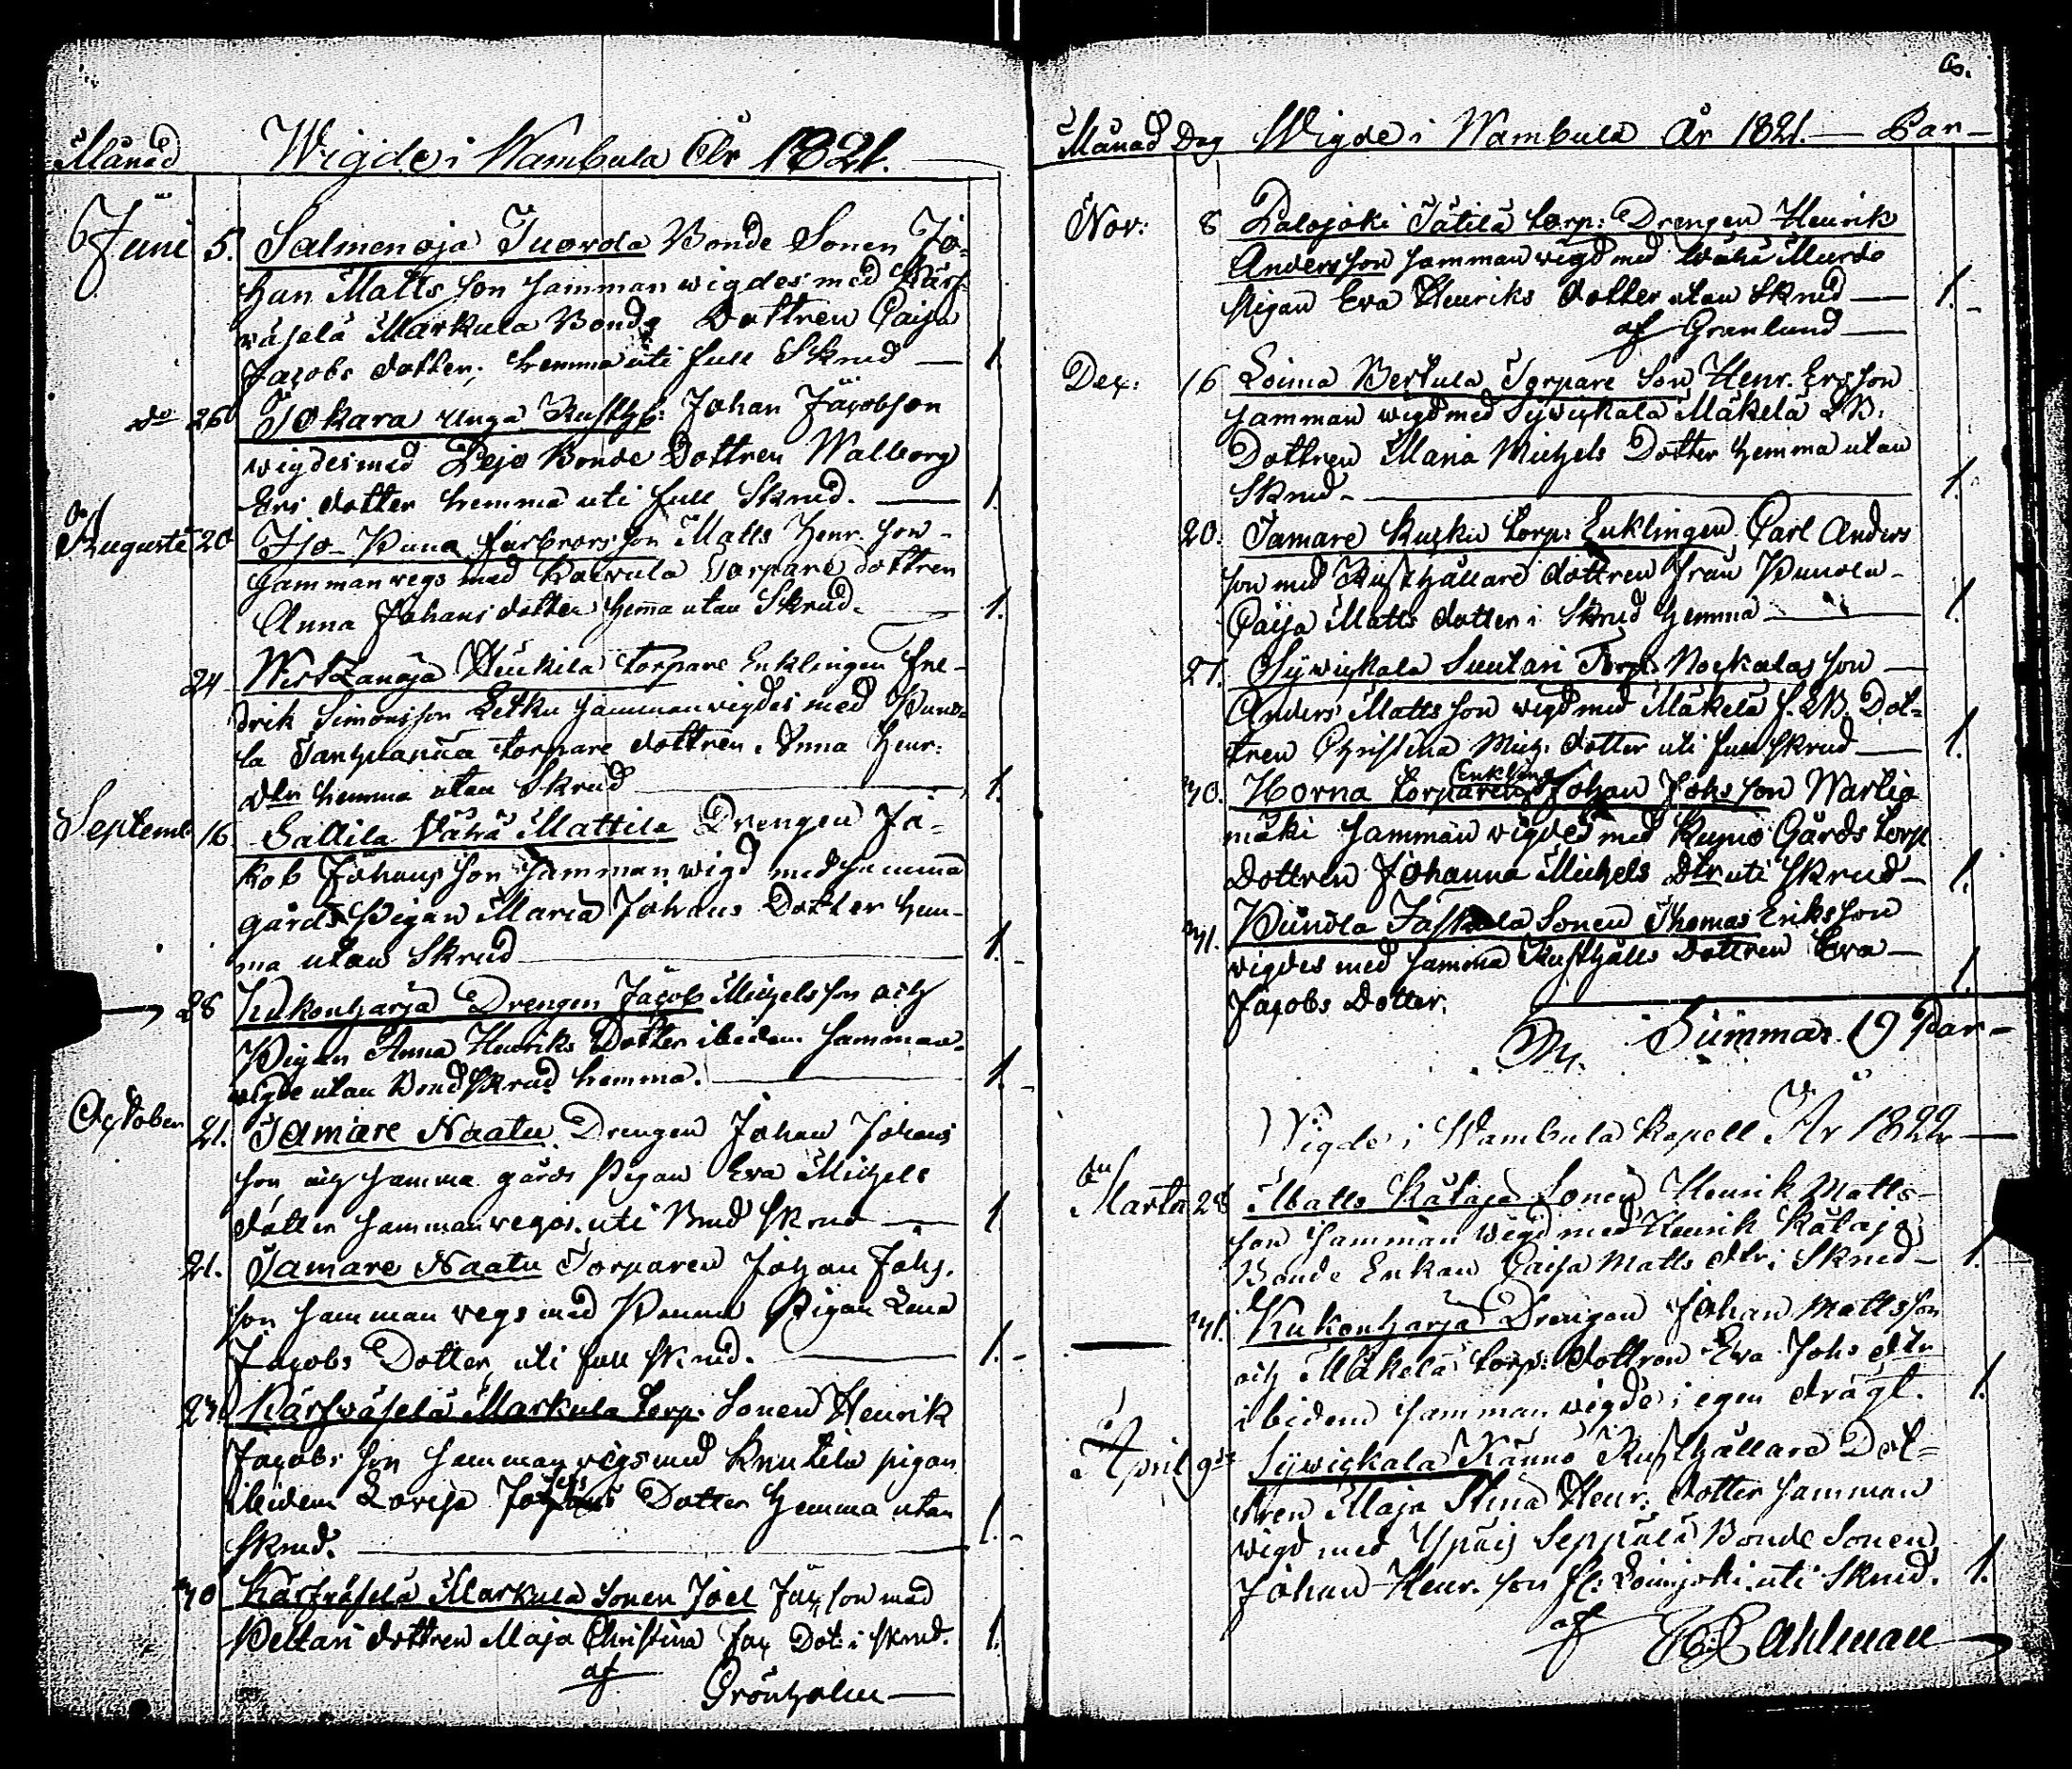 Månad Wigde i Wambula År 1821.
Juni 5. Salmenoja Tuorda Bonde Sonen Jo-
han Matts son samman wigdes med Kärf-
väselä Markula Bonde Dottren Caisa
Jacobs dotter, hemma uti full Skrud — 1.
do 26 Sokara unga Rusth: Johan Jacobson
wigdes med Pejo Bonde Dottren Walborg
Ers dotter hemma uti full Skrud. — 1.
Augusti 20 Iso-Punna farbrors son Matts Henr. son
samman vegs med Torpare dottren
Anna Johans dotter hema utan Skrud. 1.
24 Heikila torpare Enklingen Fre-
drik Simonsson Letku sammanvigdes med Puno-
la torpare dottren Anna Henr:
dtr hemma utan Skrud 1.
Septemb 16. Sallila Vähä Mattila Drengen Ja-
kob Johans son sammanwigd med samma
gårds Pigan Maria Johans Dotter hem-
ma utan Skrud 1.
28 Kukonharja Drengen Jacob Michels son och
Pigan Anna Henriks Dotter ibidem samman-
wigde utan Brudskrud hemma. 1.
October 21. Tamare Naatu Drengen Johan Johans
son och samma gårds Pigan Eva Michels
dotter sammanvegos uti Brud skrud — 1
21. Tamare Naatu Torparen Johan Johs.
son samman vegs med Punna Pigan Lena
Jacobs Dotter uti full skrud. 1.
Kärfväselä Markula torp. Sonen Henrik
Jacobs son samman vigs med Knutila pigan
ibidem Lovisa Dotter hemma utan
skrud. 1.
30 Kärfväselä Markula Sonen Joel Jac son med
Peltari dottren Maja Christina Jac Dot: i skrud. 1.
af Grönholm
6.
Månad Dag Wigde i Wambula År 1821. — Par
Nov: 8 Palojoki Tätilä torp: Drengen Henrik
Andersson samman vigd med Wähä Murto
Pigan Eva Henriks dotter utan Skrud — 1.
af Granlund
Dec: 16 Loima Bertula Torpare Son Henr. Ersson
samman vigd med Sywickala Mäkelä
Dottren Maria Michels Dotter hemma utan
Skrud 1.
20. Tamare Kusku torp: Enklingen Carl Anders
son med Rusthållare dottren från Punola
Caisa Matts dotter i Skrud hemma — 1.
27. Sywickala Suutari Torp:
Anders Matts son vigd med Mäkelä Dot-
tren Christina Mich. dotter uti full skrud — 1.
30. Horna torparen Enkling Johan Johs son Wartia
mäki samman vigdes med Kumo Gårds torp
dottren Johanna Michels dtr uti skrud — 1.
31. Punola Jaskala Sonen Thomas Eriksson
vigdes med samma Rusthålls dottren Eva
Jacobs Dotter. 1.
Summa. 19 Par
Wigde i Wambula Kapell År 1822
Martii 28 Matts Kätaja Sonen Henrik Matts-
son samman vigd med Henrik Kätaja
Bonde Enkan Caisa Matts dtr i Skrud — 1.
31. Kukonharja Drengen Johan Mattsson
och Mäkelä torp: dottren Eva Johs dtr
ibidem samman vigde i egen drägt. 1.
April 9de Sywickala Känno Rusthållare Dot-
tren Maja Stina Henr. dotter samman
vigd med Ypäis Seppälä Bonde Sonen
Johan Henr. son fr: Loimjoki uti Skrud. 1.
af Cahlman